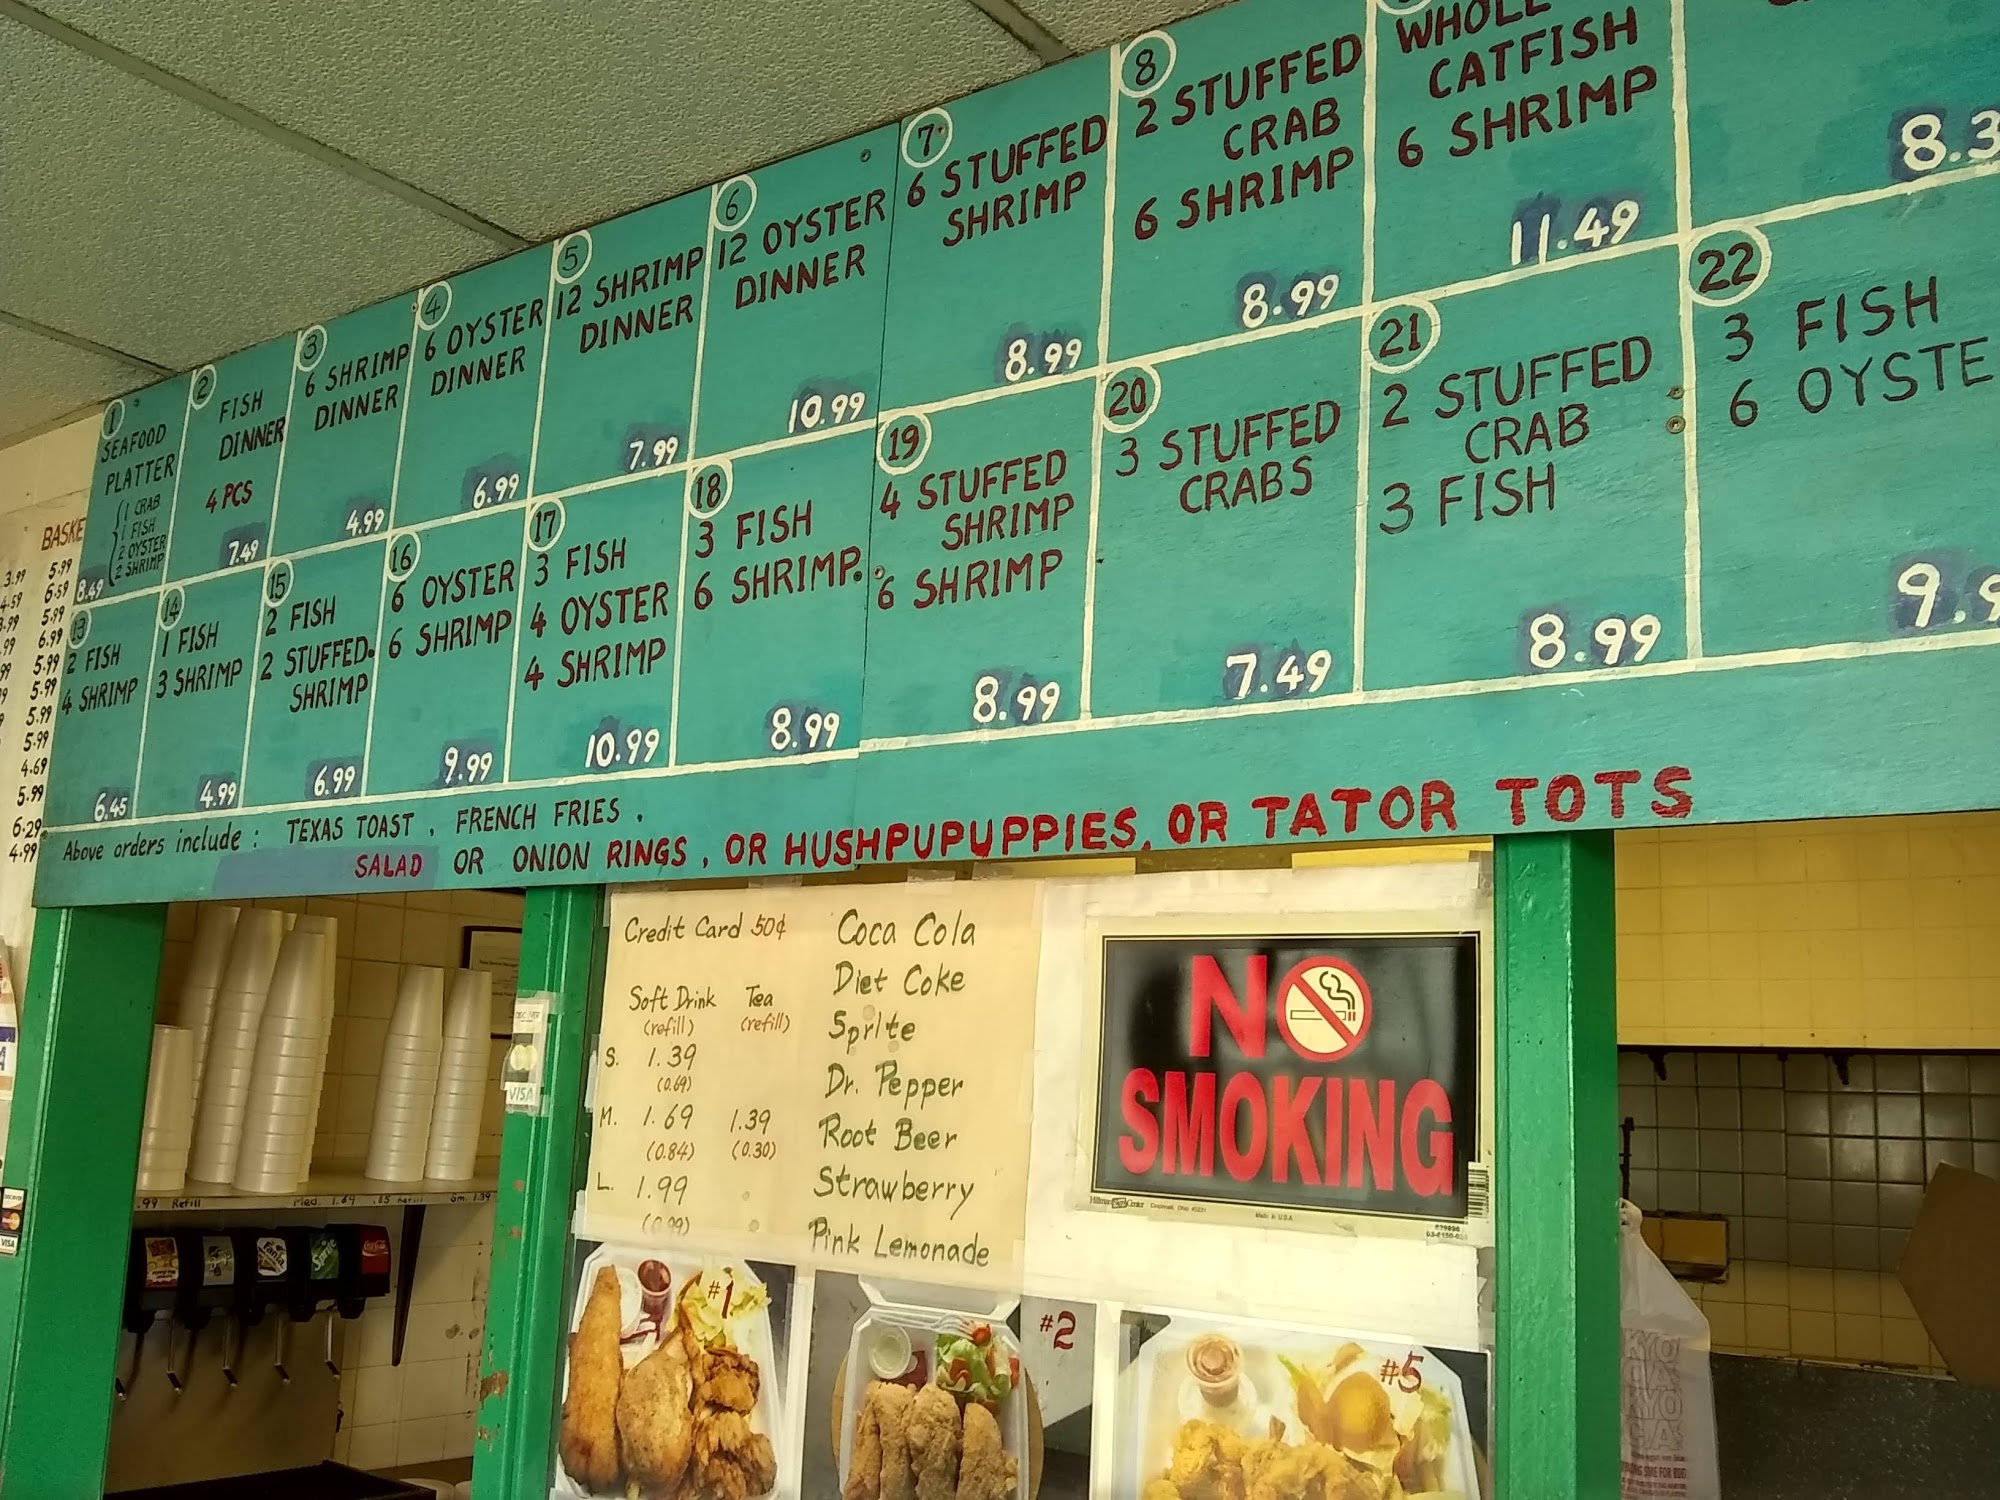 1
SEAFOOD
PLATTER
1 CRAB
1 FISH
2 OYSTER
2 SHRIMP
8.49
2
FISH
DINNER
4 PCS
7.49
3
6 SHRIMP
DINNER
4.99
4
6 OYSTER
DINNER
6.99
5
12 SHRIMP
DINNER
7.99
6
12 OYSTER
DINNER
10.99
7
6 STUFFED
SHRIMP
8.99
8
2 STUFFED
CRAB
6 SHRIMP
8.99
WHOLE
CATFISH
6 SHRIMP
11.49
8.3
13
2 FISH
4 SHRIMP
6.45
14
1 FISH
3 SHRIMP
4.99
15
2 FISH
2 STUFFED
SHRIMP
6.99
16
6 OYSTER
6 SHRIMP
9.99
17
3 FISH
4 OYSTER
4 SHRIMP
10.99
18
3 FISH
6 SHRIMP
8.99
19
4 STUFFED
SHRIMP
6 SHRIMP
8.99
20
3 STUFFED
CRABS
7.49
21
2 STUFFED
CRAB
3 FISH
8.99
22
3 FISH
6 OYSTE
9.9
Above orders include : TEXAS TOAST , FRENCH FRIES .
SALAD OR ONION RINGS , OR HUSHPUPUPPIES, OR TATOR TOTS
BASKE
3.99 5.99
4.59 6.59
5.99
6.99
5.99
5.99
5.99
5.99
4.69
5.99
6.29
4.99
Credit Card 50¢
Soft Drink Tea
(refill) (refill)
S. 1.39
(0.69)
M. 1.69 1.39
(0.84) (0.30)
L. 1.99
(0.99)
Coca Cola
Diet Coke
Sprite
Dr. Pepper
Root Beer
Strawberry
Pink Lemonade
NO
SMOKING
Cincinnati, Ohio 45231
Made in U.S.A.
DISCOVER
VISA
.99 Refill Med. 1.69 .85 Refill Sm. 1.39
Fanta
Sprite
Coca-Cola
DISCOVER
VISA
#1
#2
#5